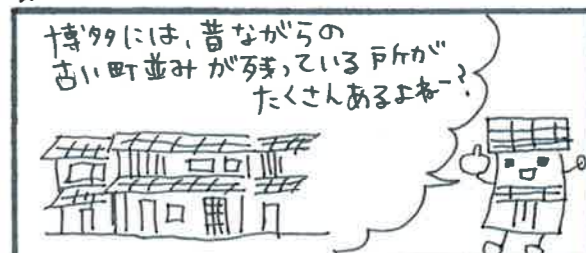 博多には、昔ながらの
古い町並みが残っている所が
たくさんあるよねー？